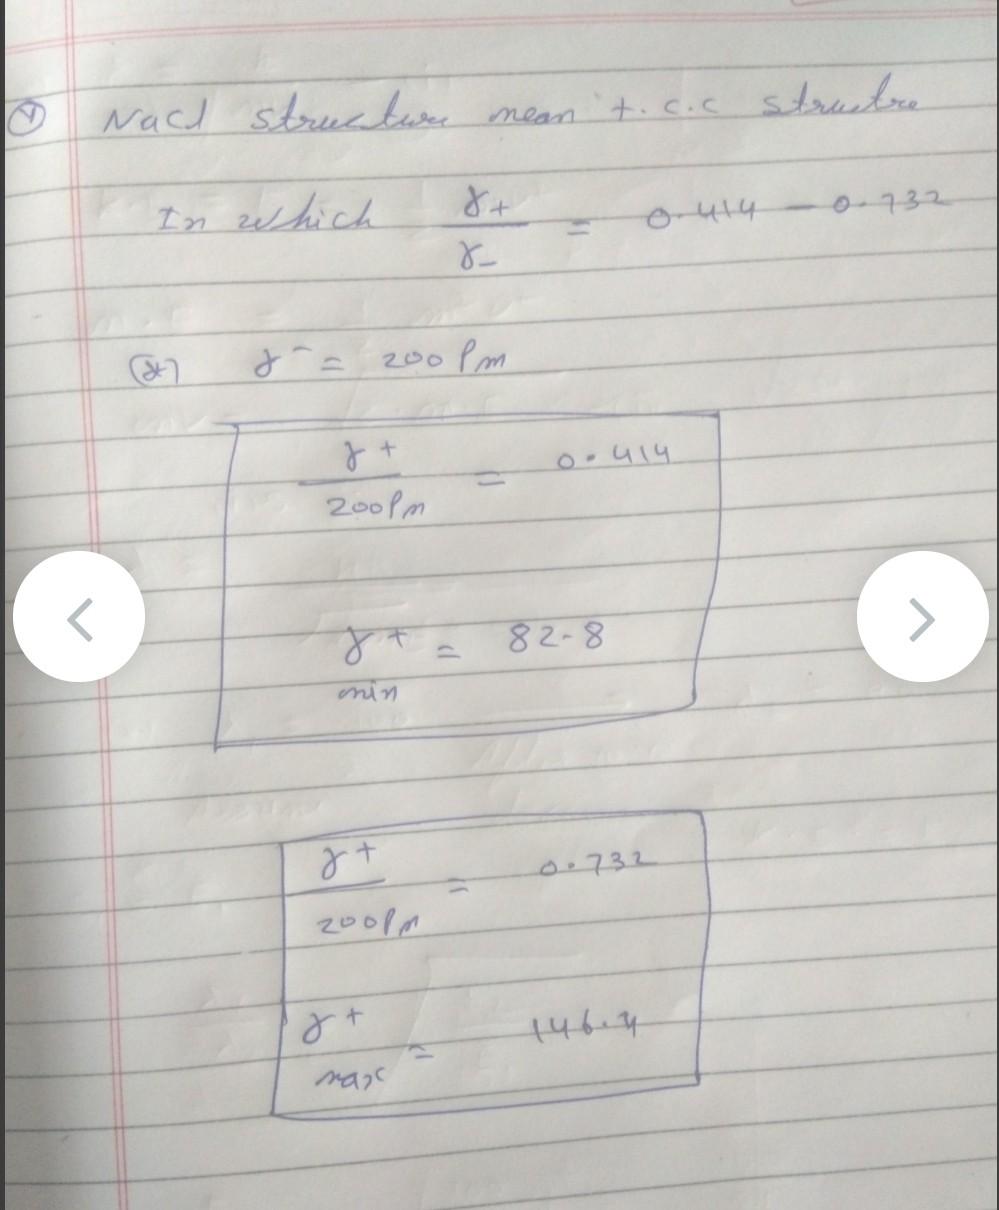 ④ Nacl structure mean f.c.c structre
In which r+/r- = 0.414 - 0.732
r- = 200 Pm
r+/200Pm = 0.414
r+ min = 82.8
r+/200Pm = 0.732
r+ max = 146.4